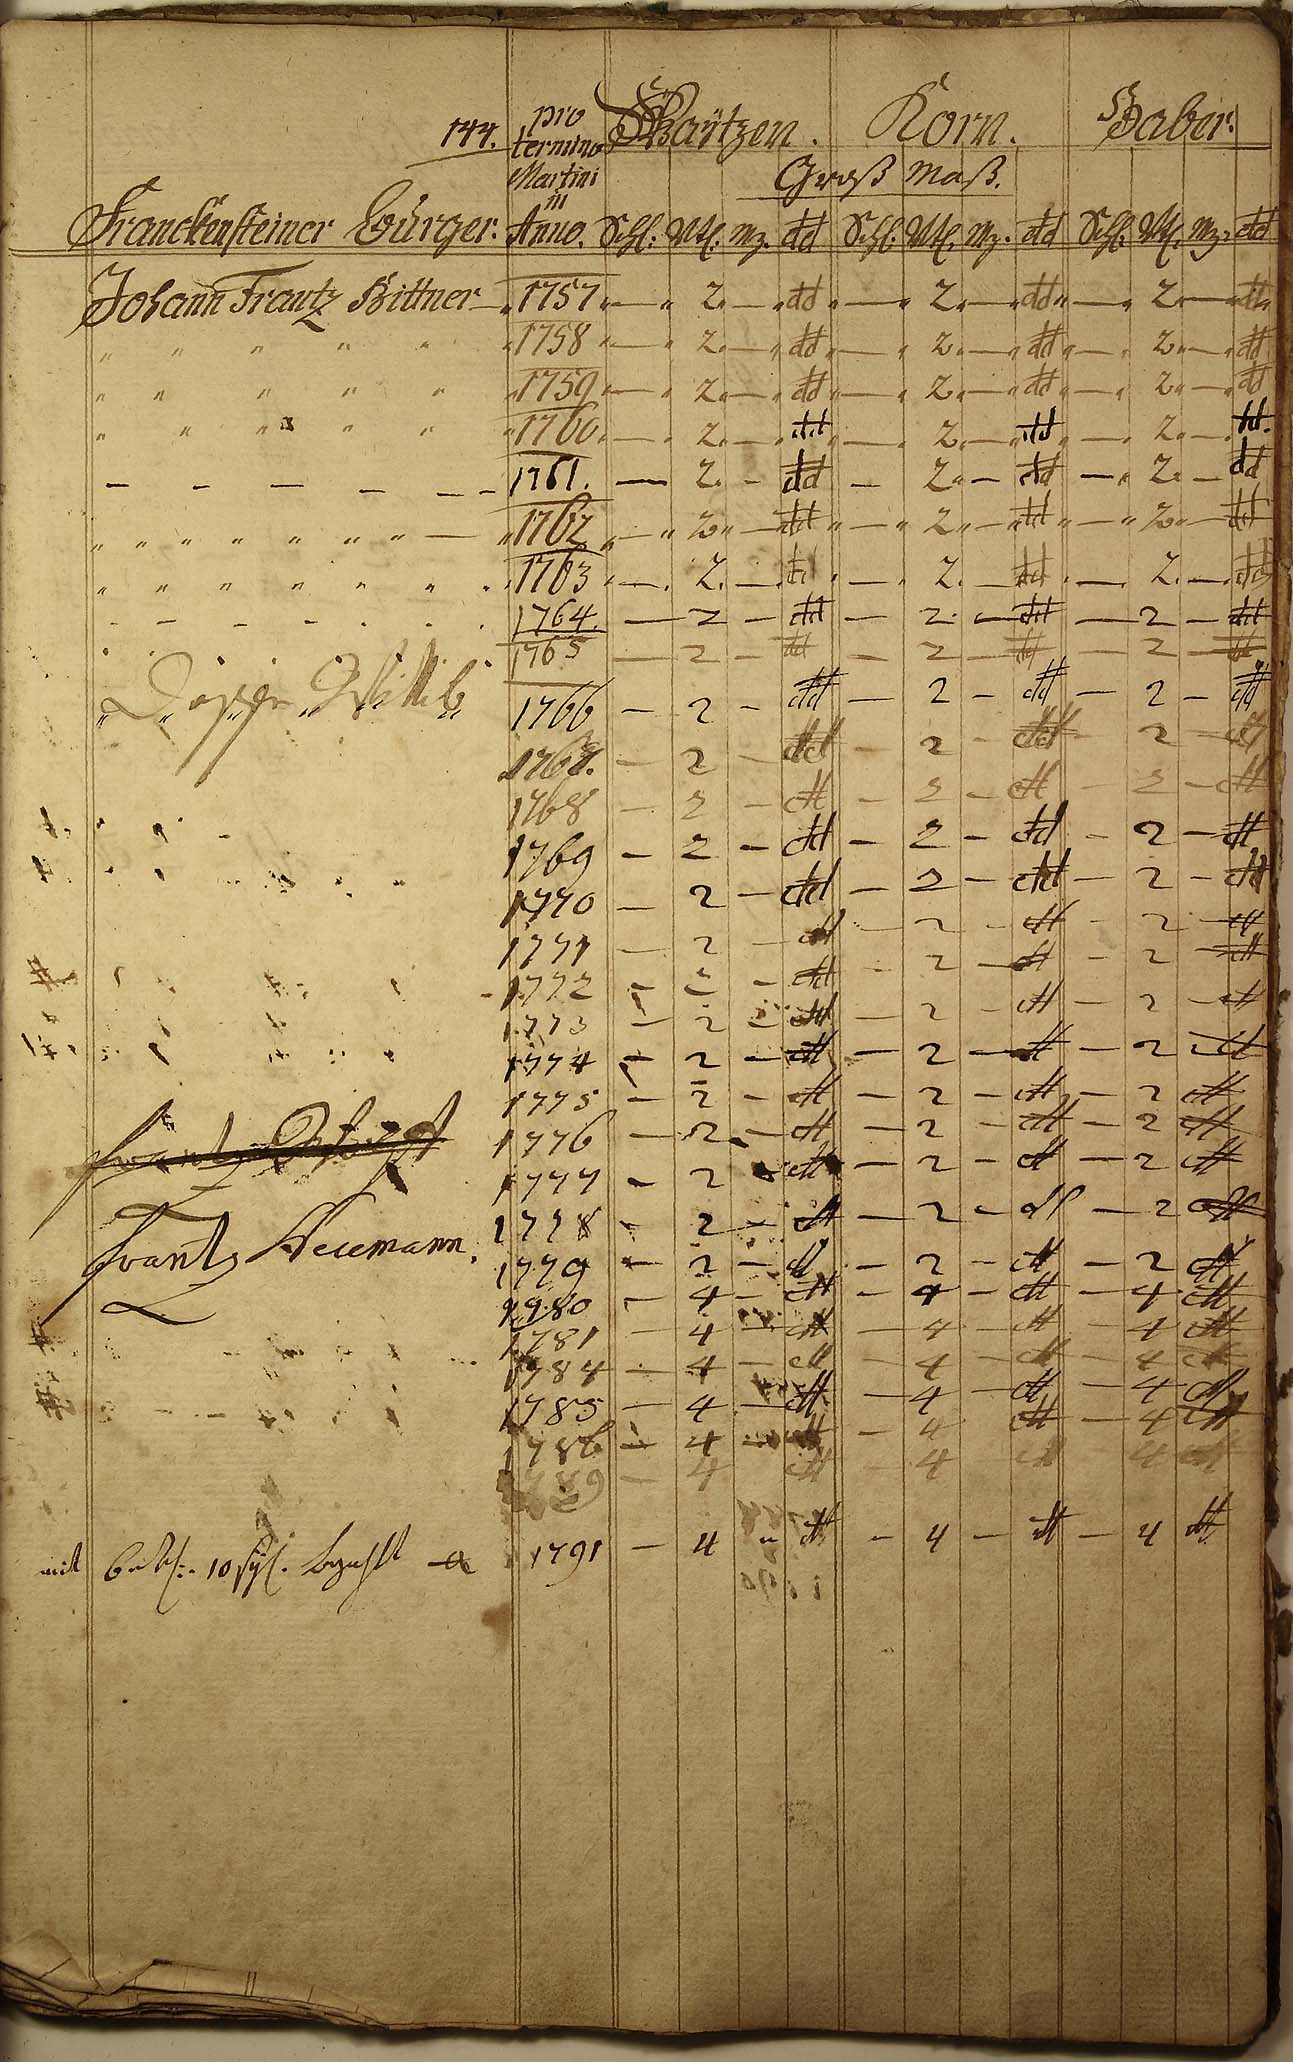 144. pro termino Martini in Anno. Waitzen. Korn. Haber.
Groß Maß.
Franckensteiner Bürger. Schl: Vtl. Mz. dd Schl: Vtl. Mz. dd Schl: Vtl. Mz: dd
Johann Frantz Bittner 1757 — 2 — dd — 2 — dd — 2 — dd
" " " " " 1758 — 2 — dd — 2 — dd — 2 — dd
" " " " " 1759 — 2 — dd — 2 — dd — 2 — dd
" " " " " 1760 — 2 — dd — 2 — dd — 2 — dd.
— — — — — 1761. — 2 — dd — 2 — dd — 2 — dd
" " " " " " " " — 1762 — 2 — dd — 2 — dd — 2 — dd
" " " " " " " 1763 — 2 — dd — 2 — dd — 2 — dd
1764. — 2 — dd — 2 — dd — 2 — dd
1765 — 2 — dd — 2 — dd — 2 — dd
1766 — 2 — dd — 2 — dd — 2 — dd
1767. — 2 — dd — 2 — dd — 2 — dd
1768 — 2 — dd — 2 — dd — 2 — dd
1769 — 2 — dd — 2 — dd — 2 — dd
1770 — 2 — dd — 2 — dd — 2 — dd
1771 — 2 — dd — 2 — dd — 2 — dd
1772 — 2 — dd — 2 — dd — 2 — dd
1773 — 2 — dd — 2 — dd — 2 — dd
1774 — 2 — dd — 2 — dd — 2 — dd
1775 — 2 — dd — 2 — dd — 2 dd
Frantz 1776 — 2 — dd — 2 — dd — 2 dd
1777 — 2 dd — 2 — dd — 2 dd
1778 — 2 — dd — 2 — dd — 2 dd
Frantz Neumann. 1779 — 2 — dd — 2 — dd — 2 dd
1780 — 4 — dd — 4 — dd — 4 dd
1781 — 4 — dd — 4 — dd — 4 dd
1784 — 4 — dd — 4 — dd — 4 dd
1785 — 4 — dd — 4 — dd — 4 dd
1786 — 4 — dd — 4 dd — 4 dd
4 dd — 4 dd 4 dd
mit 10 bezahlt 1791 — 4 dd — 4 — dd — 4 dd